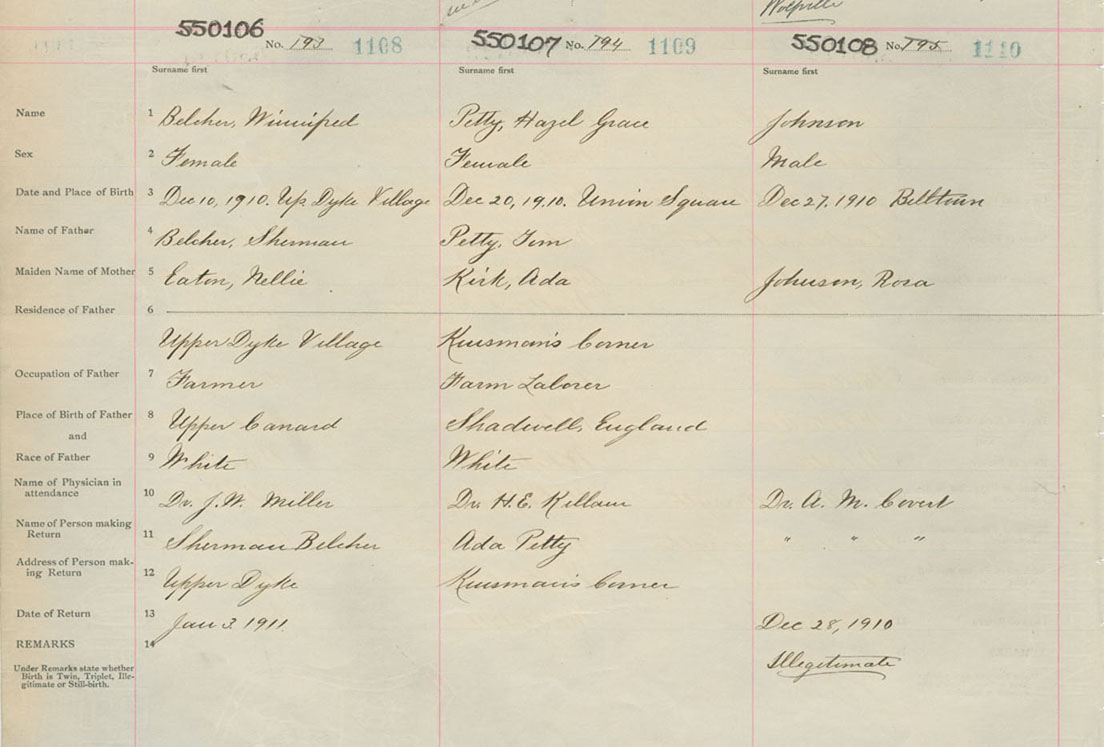 Wolfville
550106 No. 193 1108 550107 No. 194 1109 550108 No. 195 1110
Surname first Surname first Surname first
Name 1 Belcher, Winnifred Petty, Hazel Grace Johnson
Sex 2 Female Female Male
Date and Place of Birth 3 Dec 10, 1910. Up. Dyke Village Dec 20, 1910. Union Square Dec 27. 1910 Belltown
Name of Father 4 Belcher, Sherman Petty, Tom
Maiden Name of Mother 5 Eaton, Nellie Kirk, Ada Johnson, Rosa
Residence of Father 6
Upper Dyke Village Kinsman's Corner
Occupation of Father 7 Farmer Farm Laborer
Place of Birth of Father 8 Upper Canard Shadwell, England
and
Race of Father 9 White White
Name of Physician in
attendance 10 Dr. J. W. Miller Dr. H. E. Killam Dr. A. M. Covert
Name of Person making
Return 11 Sherman Belcher Ada Petty " " "
Address of Person mak-
ing Return 12 Upper Dyke Kinsman's Corner
Date of Return 13 Jan 3. 1911 Dec 28, 1910
REMARKS 14 Illegitimate
Under Remarks state whether
Birth is Twin, Triplet, Ille-
gitimate or Still-birth.